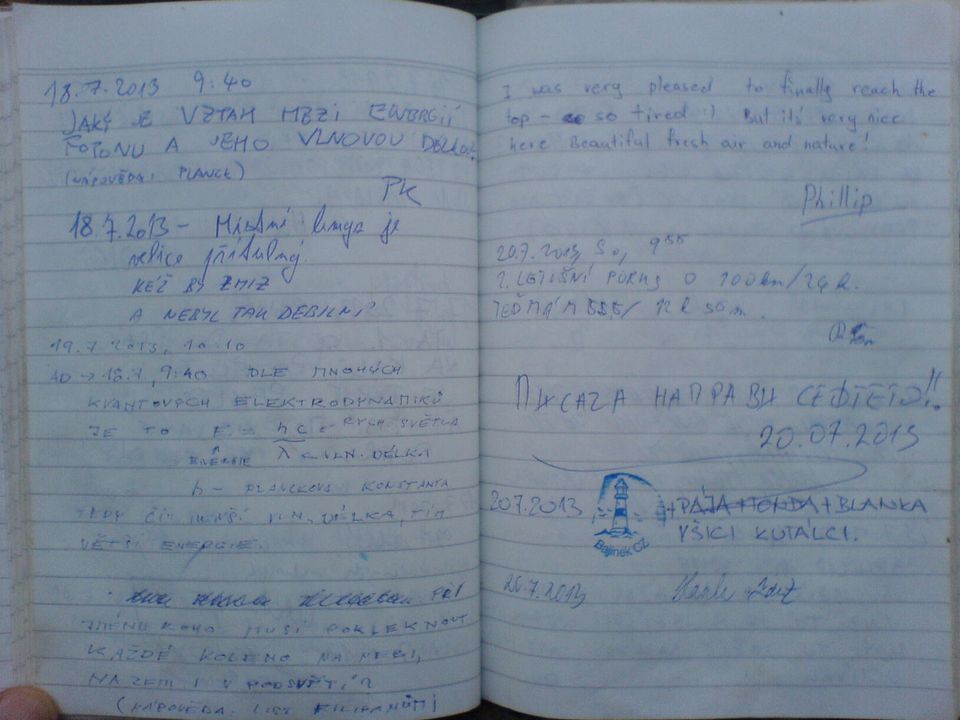 18.7.2013 9:40
JAKÝ JE VZTAH MEZI ENERGIÍ
FOTONU A JEHO VLNOVOU DÉLKOU?
(NÁPOVĚDA: PLANCK)
PK
18.7.2013 – Místní je
velice přítulný
KÉŽ BY ZMIZ
A NEBYL TAK DEBILNÍ
19.7.2013, 10:10
AD → 18.7., 9:40 DLE MNOHÝCH
KVANTOVÝCH ELEKTRODYNAMIKŮ
JE TO E = hc ← RYCH. SVĚTLA
ENERGIE λ ← VLN. DÉLKA
h – PLANCKOVA KONSTANTA
TEDY ČÍM MENŠÍ VLN. DÉLKA, TÍM
VĚTŠÍ ENERGIE.
PŘI
JMÉNU KOHO MUSÍ POKLEKNOUT
KAŽDÉ KOLENO NA NEBI,
NA ZEMI I V PODSVĚTÍ?
(NÁPOVĚDA: LIST FILIPANŮM)
I was very pleased to finally reach the
top – so tired :) But it's very nice
here Beautiful fresh air and nature!
Phillip
20.7.2013, So, 9 55
2. LETOŠNÍ POKUS O 100km/24h.
TEĎ MÁM 12h 50m.
НАПРАВИ
20.07.2013
20.7.2013
Bajinek CZ
+ PÁJA + HONDA + BLANKA
VŠICI KUTÁLCI.
20.7.2013